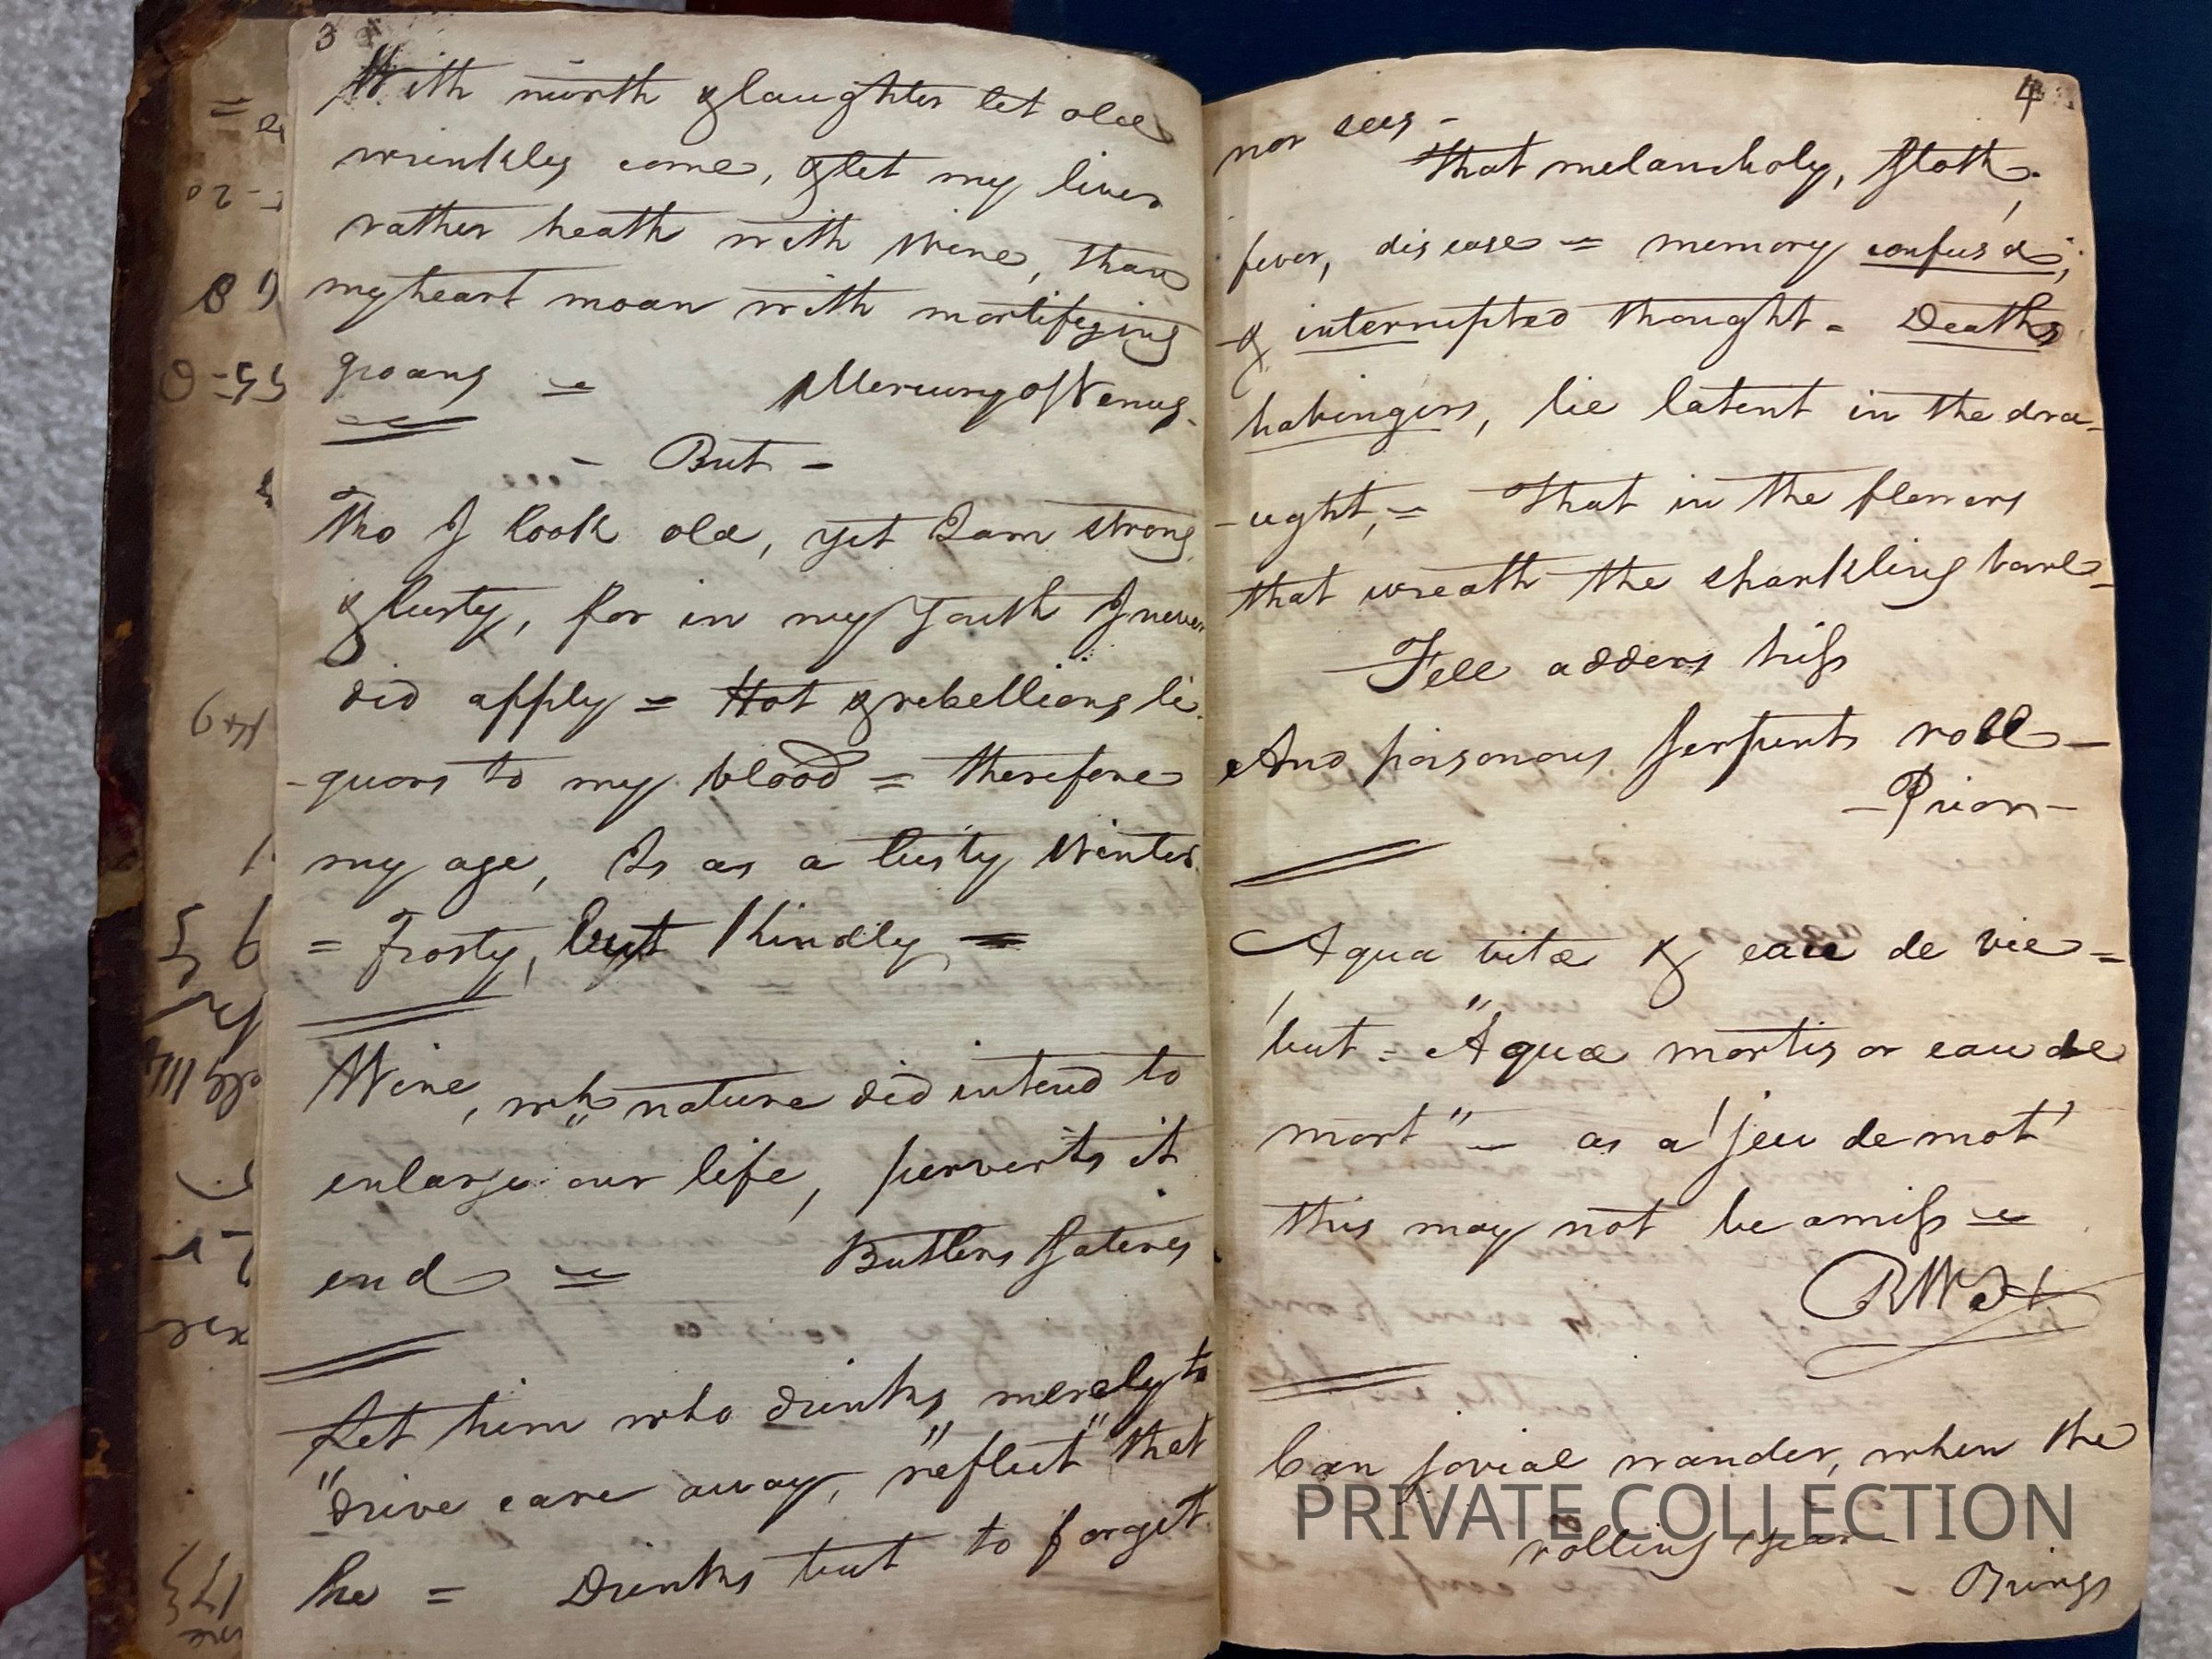 3
With mirth & laughter let old
wrinkles come, & let my liver
rather heath with Wine, than
my heart moan with mortifying
groans =
Mercury of Venus.
- But -
Tho I look old, yet I am strong
& lusty, for in my Youth I never
did apply = Hot & rebellious li-
-quors to my blood = therefore
my age, Is as a lusty Winter
= Frosty, but Kindly =
Wine, wh nature did intend to
enlarge our life, perverts it
end =
Butlers Satires
Let him who drinks, merely to
"drive care away, "reflect" that
he = Drinks but to forget
4
nor sees -
That melancholy, Sloth,
fever, disease = memory confus'd;
& interrupted thought = Deaths
habingers, lie latent in the dra-
-ught, = That in the flowers
that wreath the sparkling bowl -
Fell adders hiss
And poisonous serpents roll -
- Prior -
Aqua vitæ & eau de vie =
but = "Aquæ mortis or eau de
mort" - as a 'jeu de mot'
this may not be amiss =
Can jovial wander, when the
rolling year
- Brings
PRIVATE COLLECTION